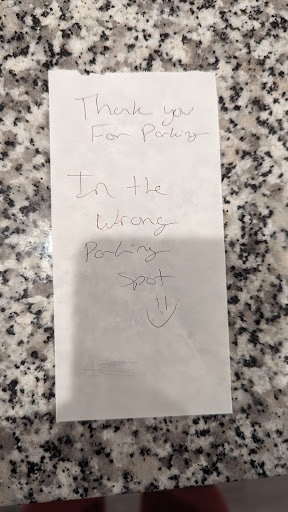 Thank you
For Parking
In the
Wrong
Parking
Spot